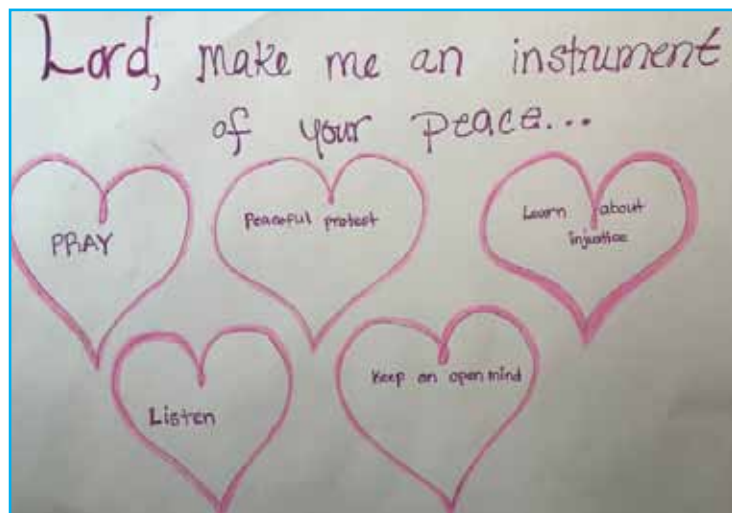 Lord, make me an instrument
of your peace...
PRAY
Peaceful protest
Learn about
injustice
Listen
Keep an open mind